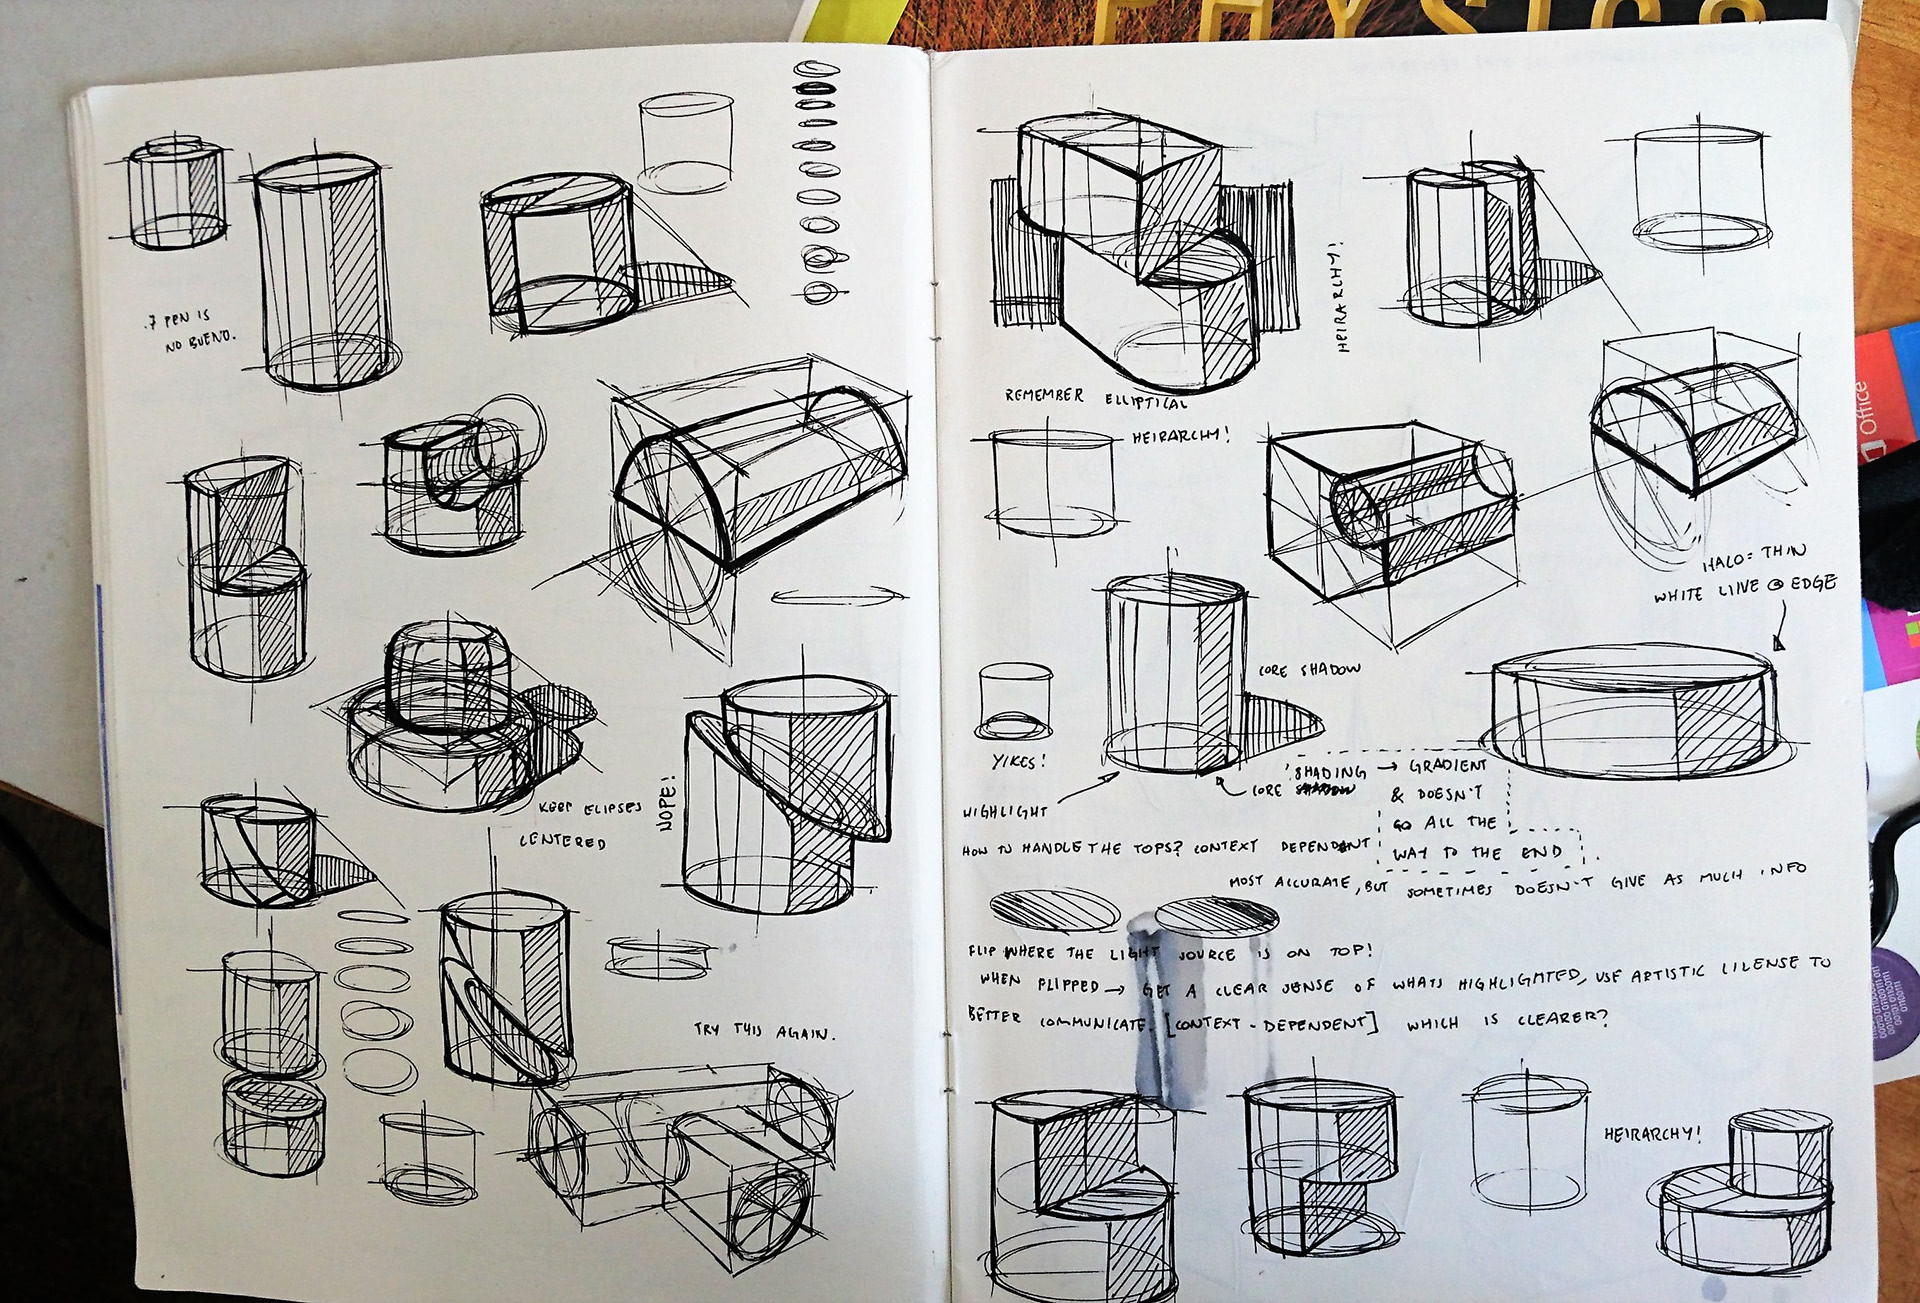 PHYSICS
.7 PEN IS
NO BUENO.
KEEP ELIPSES
CENTERED
NOPE!
TRY THIS AGAIN.
HEIRARCHY!
REMEMBER ELLIPTICAL
HEIRARCHY!
Office
HALO = THIN
WHITE LINE @ EDGE
CORE SHADOW
YIKES!
HIGHLIGHT
CORE SHADOW
SHADING → GRADIENT
& DOESN'T
GO ALL THE
WAY TO THE END
HOW TO HANDLE THE TOPS? CONTEXT DEPENDENT
MOST ACCURATE, BUT SOMETIMES DOESN'T GIVE AS MUCH INFO
FLIP WHERE THE LIGHT SOURCE IS ON TOP!
WHEN FLIPPED → GET A CLEAR SENSE OF WHATS HIGHLIGHTED, USE ARTISTIC LILENSE TO
BETTER COMMUNICATE. [CONTEXT-DEPENDENT] WHICH IS CLEARER?
HEIRARCHY!